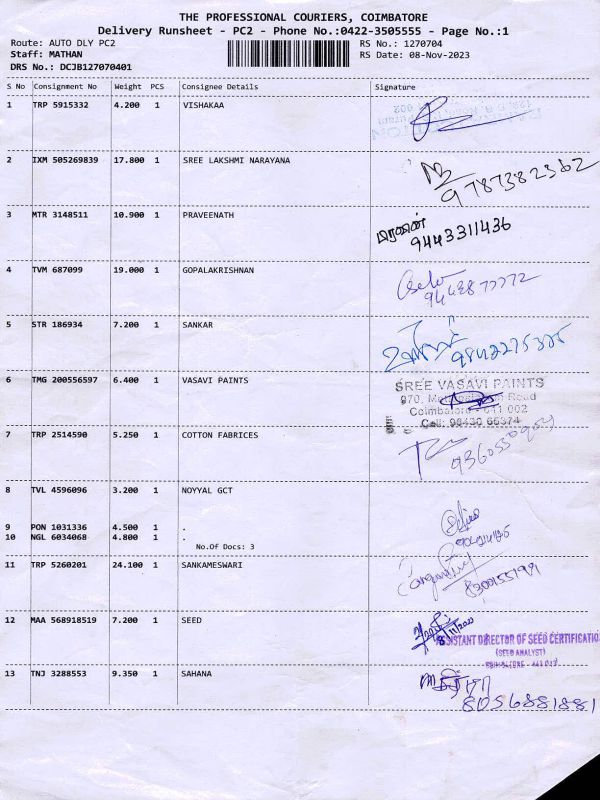 THE PROFESSIONAL COURIERS, COIMBATORE
Delivery Runsheet - PC2 - Phone No.:0422-3505555 - Page No.:1
Route: AUTO DLY PC2 RS No.: 1270704
Staff: MATHAN RS Date: 08-Nov-2023
DRS No.: DCJB127070401
S No Consignment No Weight PCS Consignee Details Signature
1 TRP 5915332 4.200 1 VISHAKAA
2 IXM 505269839 17.800 1 SREE LAKSHMI NARAYANA
9787382362
3 MTR 3148511 10.900 1 PRAVEENATH
9443311436
4 TVM 687099 19.000 1 GOPALAKRISHNAN
5 STR 186934 7.200 1 SANKAR
6 TMG 200556597 6.400 1 VASAVI PAINTS
SREE VASAVI PAINTS
970, Road
Coimbatore - 641 002
Cell: 98430 66374
7 TRP 2514590 5.250 1 COTTON FABRICES
8 TVL 4596096 3.200 1 NOYYAL GCT
9 PON 1031336 4.500 1 .
10 NGL 6034068 4.800 1 .
No.Of Docs: 3
11 TRP 5260201 24.100 1 SANKAMESWARI
8300155199
12 MAA 568918519 7.200 1 SEED
ISTANT DIRECTOR OF SEED CERTIFICATIO
(SEED ANALYST)
13 TNJ 3288553 9.350 1 SAHANA
8056881881